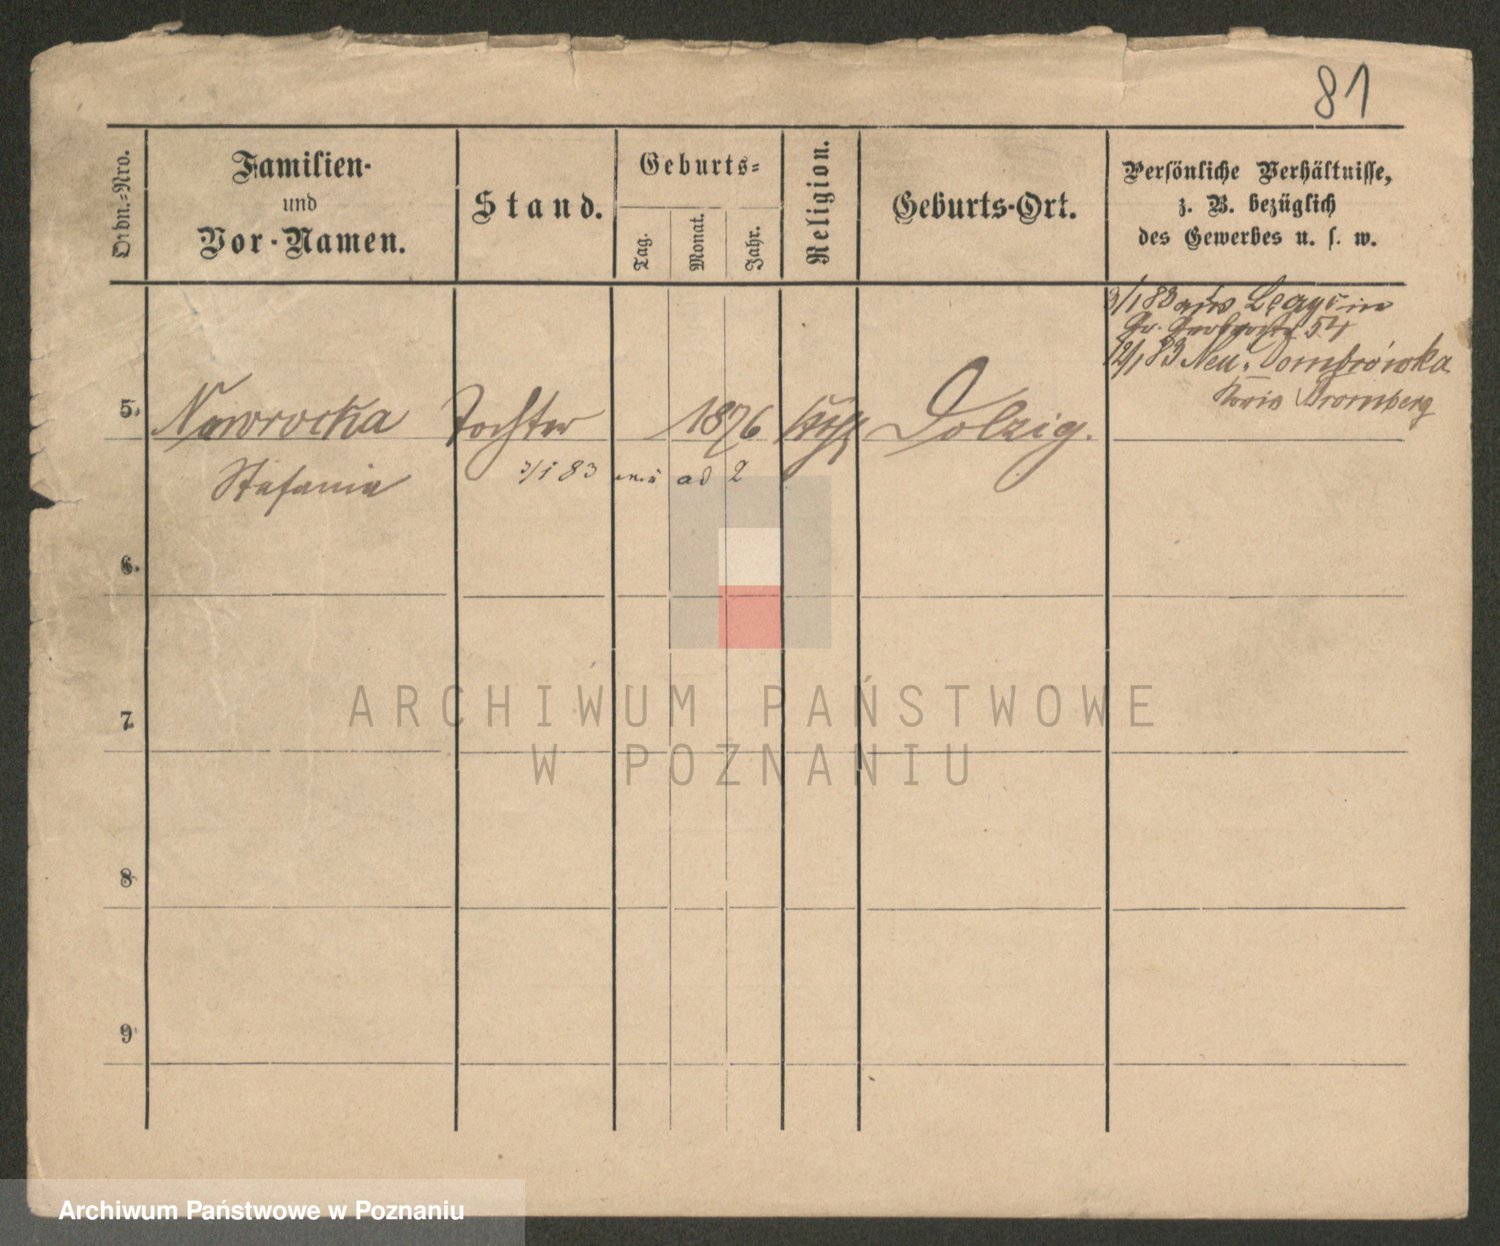 81
Ordn.-Nro.
Familien-
und
Vor-Namen.
Stand.
Geburts-
Tag.
Monat.
Jahr.
Religion.
Geburts-Ort.
Persönliche Verhältnisse,
z. B. bezüglich
des Gewerbes u. s. w.
3/1 83 aus
54
12/1 83 Neu Dombrówka
Kreis Bromberg
5. Nawrocka Tochter 1876 kath Dolzig.
Stefania 3/1 83 ad 2
6.
7.
8.
9.
ARCHIWUM PAŃSTWOWE
W POZNANIU
Archiwum Państwowe w Poznaniu